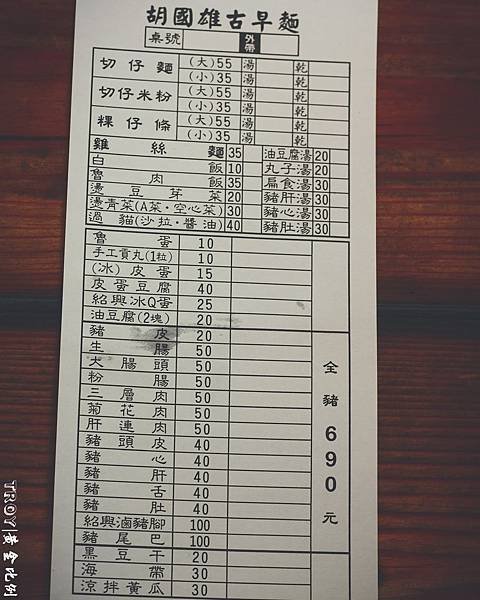 胡國雄古早麵
桌號 外帶
切仔麵 (大)55 湯 乾
(小)35 湯 乾
切仔米粉 (大)55 湯 乾
(小)35 湯 乾
粿仔條 (大)55 湯 乾
(小)35 湯 乾
雞絲麵 35 油豆腐湯 20
白飯 10 丸子湯 20
魯肉飯 35 扁食湯 30
燙豆芽菜 20 豬肝湯 30
燙青菜(A菜·空心菜) 30 豬心湯 30
過貓(沙拉·醬油) 40 豬肚湯 30
魯蛋 10
手工貢丸(1粒) 10
(冰)皮蛋 15
皮蛋豆腐 40
紹興冰Q蛋 25
油豆腐(2塊) 20
豬皮 20
生腸 50
大腸頭 50
粉腸 50
三層肉 50
菊花肉 50
肝連肉 50
豬頭皮 40
豬心 40
豬肝 40
豬舌 40
豬肚 40
紹興滷豬腳 100
豬尾巴 100
全豬690元
黑豆干 20
海帶 30
涼拌黃瓜 30
TROY|黃金比例